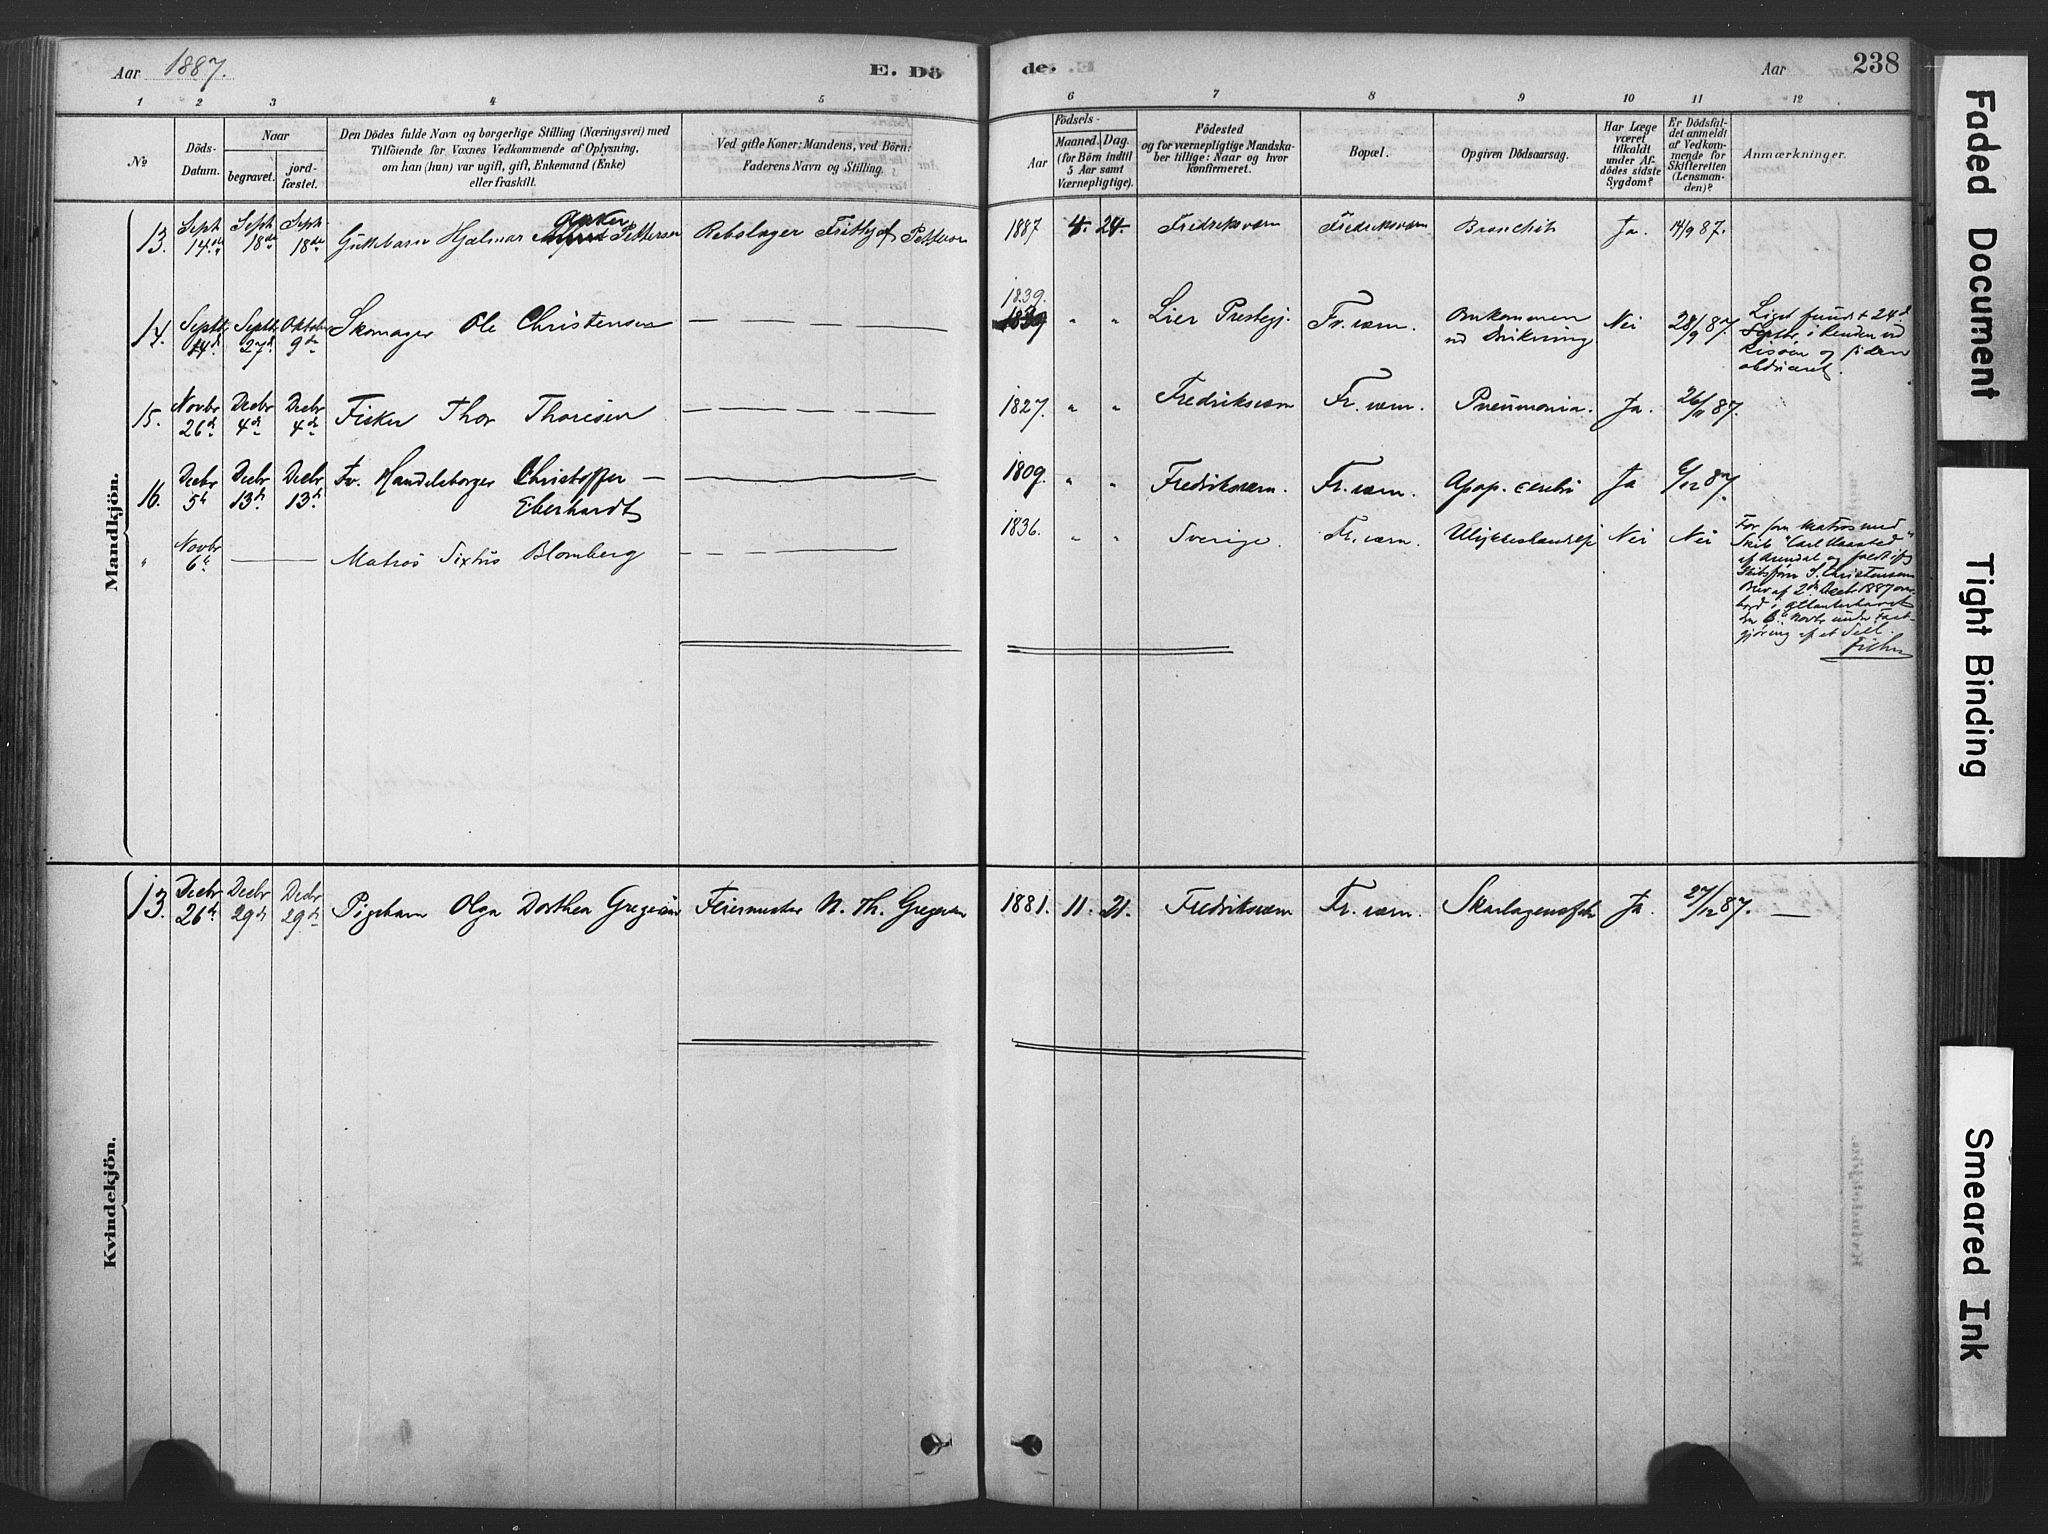 Aar 1887.
E. Dö
de.
Aar
238
1 2 3 4 5 6 7 8 9 10 11 12
No
Döds-
Datum.
Naar
begravet.
jord-
fæstet.
Den Dödes fulde Navn og borgerlige Stilling (Næringsvei) med
Tilföiende for Voxnes Vedkommende af Oplysning,
om han (hun) var ugift, gift, Enkemand (Enke)
eller fraskilt.
Ved gifte Koner: Mandens, ved Börn:
Faderens Navn og Stilling.
Födsels-
Aar
Maaned. Dag.
(for Börn indtil
5 Aar samt
Værnepligtige).
Födested
og for værnepligtige Mandska-
ber tillige: Naar og hvor
konfirmeret.
Bopæl.
Opgiven Dödsaarsag.
Har Læge
været
tilkaldt
under Af-
dödes sidste
Sygdom?
Er Dödsfal-
det anmeldt
af Vedkom-
mende for
Skifteretten
(Lensman-
den)?
Anmærkninger.
Mandkjön.
13. Septr 14de Septr 18de Septr 18de Guttebarn Hjalmar Anker Pettersen Rebslager Frithjof Pettersen 1887 4. 24. Fredriksværn Fredriksværn Bronchit Ja. 14/9 87.
14. Septr 14de Septr 27de Oktober 9de Skomager Ole Christensen 1839. " " Lier Prestegj. Fr.værn. Omkommen ved Drukning Nei 28/9 87. Liget fundet 24de
Septbr. i Renden ved
Risøen og siden
obduceret.
15. Novbr 26de Decbr 4de Decbr 4de Fisker Thor Thoresen 1827. " " Fredriksværn Fr.værn. Pneumonia. Ja. 26/11 87.
16. Decbr 5te Decbr 13de Decbr 13de Fv. Handelsborger Christoffer
Eberhardt 1809. " " Fredriksværn. Fr.værn. Apop. cerebri Ja 6/12 87.
" Novbr 6te Matros Sixtus Blomberg 1836. " " Sverige. Fr.værn. Ulykkeshændelse Nei Nei For som Matros med
Skib "Carl
af Arendal og faldt ifølge
Skibsfører S. Christensens
Brev af 2den Decbr 1887 over-
bord i Atlanterhavet
den 6te Novbr under Fast-
gjøring af et Seil.
Kvindekjön.
13. Decbr 26de Decbr 29de Decbr 29de Pigebarn Olga Dorthea Gregersen Feiermester N. Th. Gregersen 1881. 11. 21. Fredriksværn Fr.værn. Skarlagensfeber Ja. 27/12 87.
Faded Document
Tight Binding
Smeared Ink